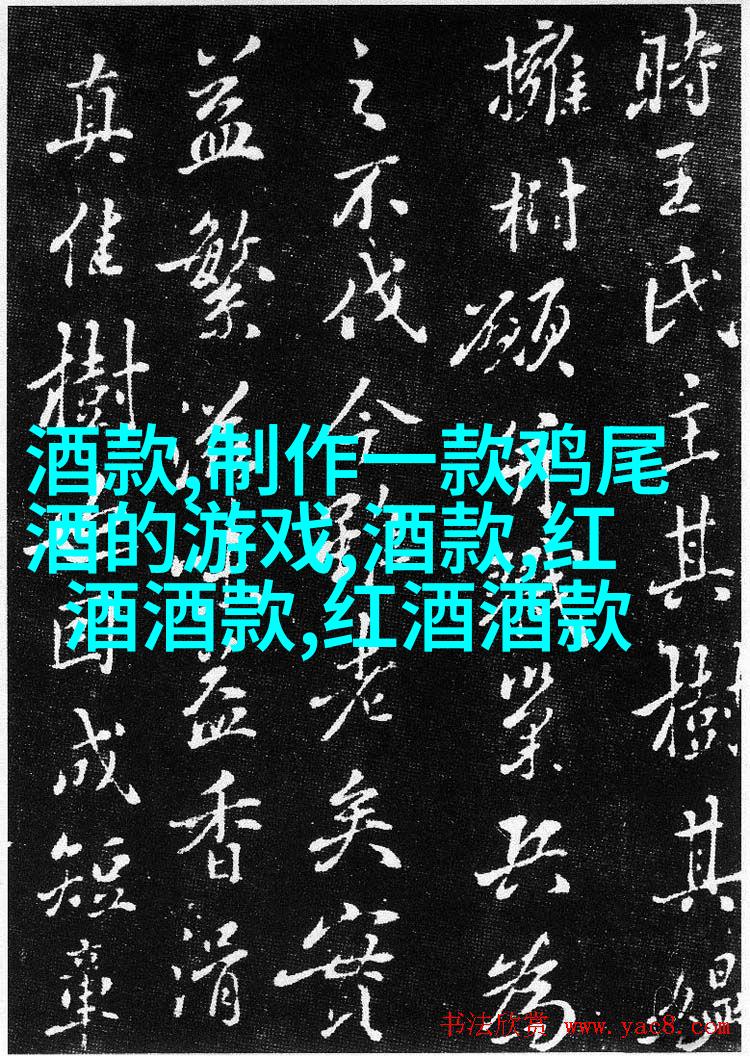 時王氏主其樹其
擁樹願并業兵為
之不伐今老矣實
益繁益香滑
真佳樹因成短章
酒款,制作一款鸡尾
酒的游戏,酒款,红
酒酒款,红酒酒款
书法欣赏 www.yac8.com